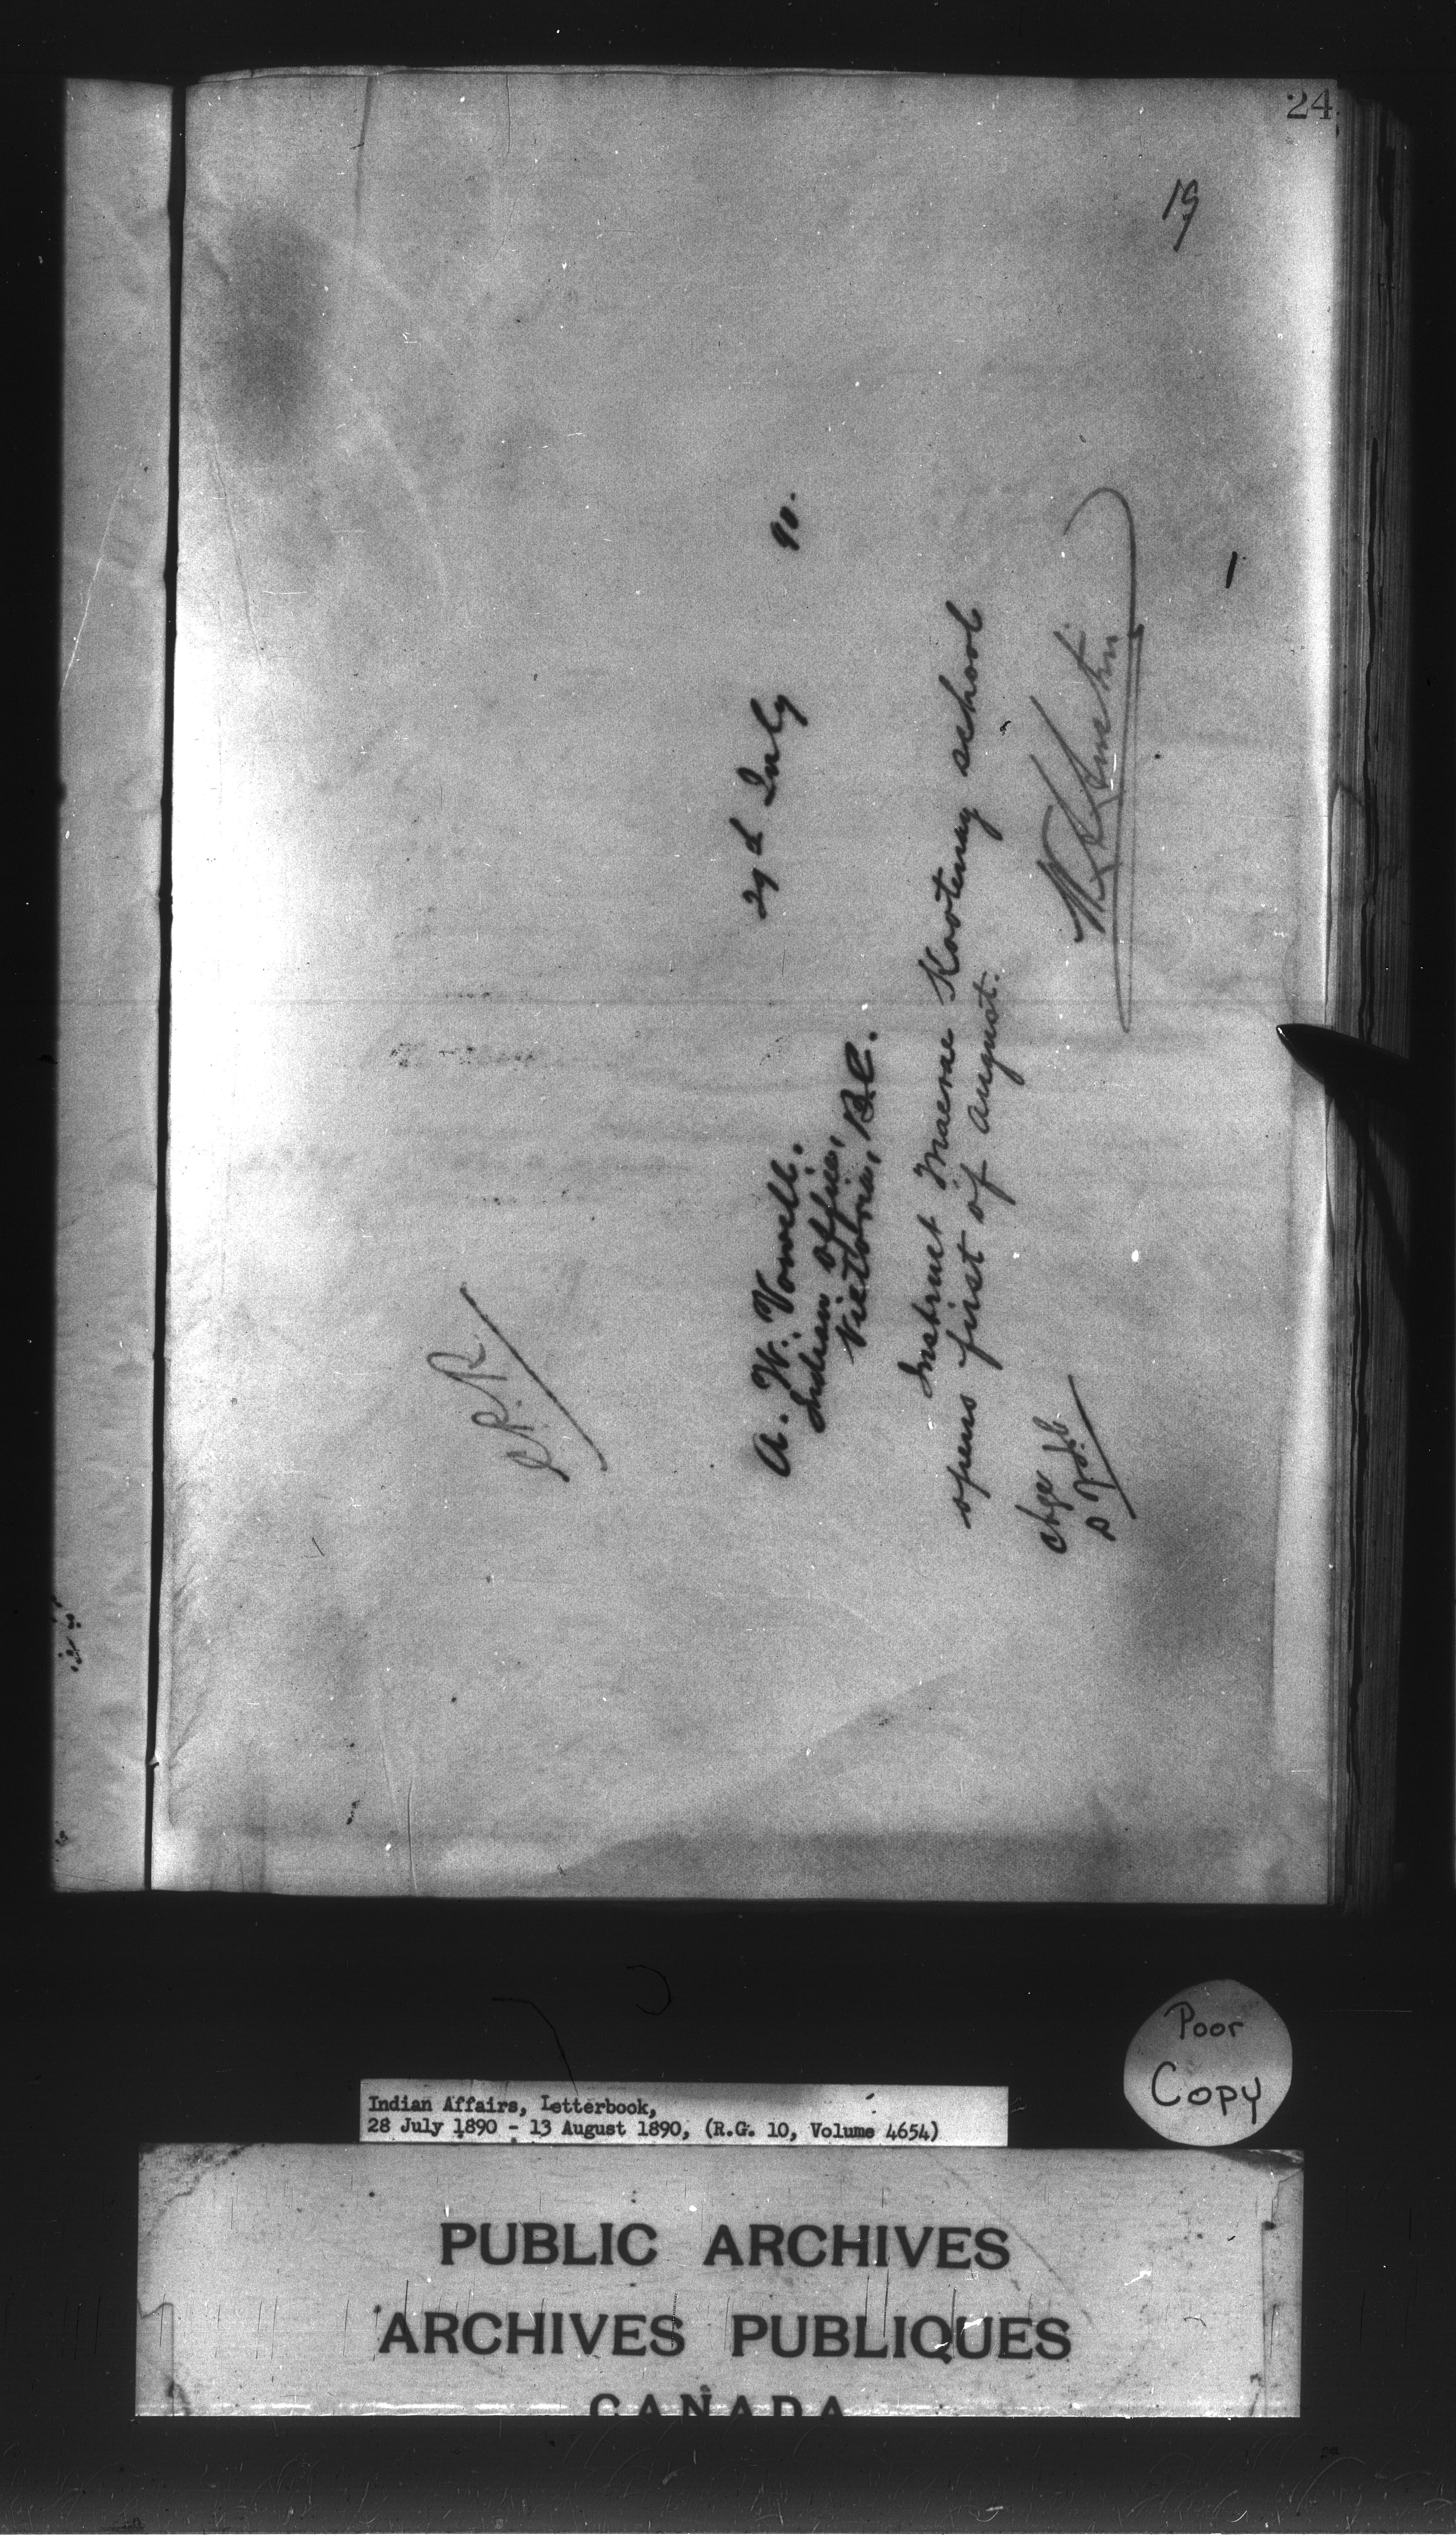 24
19
C.P.R
29d July 90.
A. W. Vowell.
Indian Office,
Victoria, B.C.
Instruct Macrae Kootenay school
opens first of August.
Chge
Poor
Copy
Indian Affairs, Letterbook,
28 July 1890 - 13 August 1890, (R.G. 10, Volume 4654)
PUBLIC ARCHIVES
ARCHIVES PUBLIQUES
CANADA